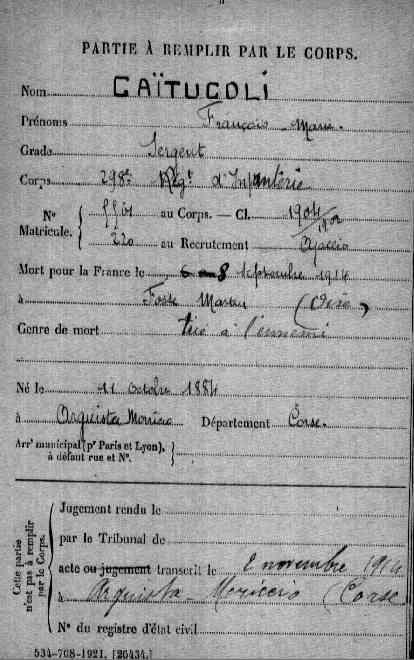 PARTIE À REMPLIR PAR LE CORPS.
Nom GAÏTUCOLI
Prénoms François Marie.
Grade Sergent
Corps 298e Régt d'Infanterie
N° Matricule. 5501 au Corps. — Cl. 1904
220 au Recrutement Ajaccio
Mort pour la France le 6 — 8 septembre 1914
à Fosse Martin (Oise)
Genre de mort tué à l'ennemi
Né le 11 octobre 1884
à Arquista Moriccio Département Corse.
Arrt municipal (pr Paris et Lyon),
à défaut rue et N°.
Cette partie n'est pas à remplir par le Corps.
Jugement rendu le
par le Tribunal de
acte ou jugement transcrit le 2 novembre 1914
à Arquista - Moricero (Corse
N° du registre d'état civil
534-708-1921. [26434.]